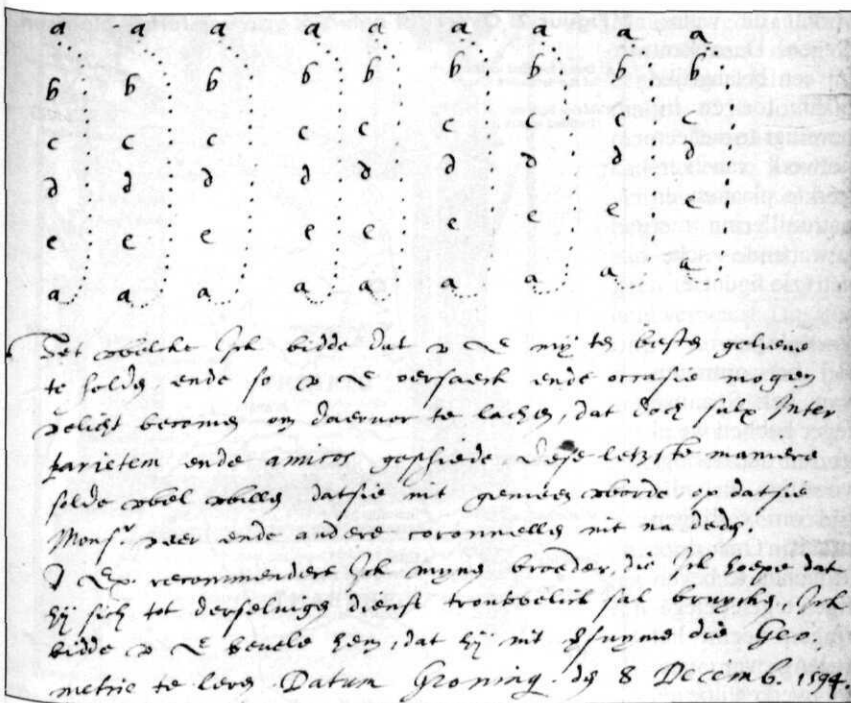 a a a a a a a a a
b b b b b b b b b
c c c c c c c c c
d d d d d d d d d
e e e e e e e e e
a a a a a a a a a
Het welcke Ick bidde dat v E my ten besten geliewe
te holden ende so v E oersaeck ende occasie mogen
velicht becomen om daervor te lachen, dat doch sulx Inter
parietem ende amicos geschiede. Dese letzste maniere
solde wel willen datsie nit gemeen worde op datsie
Monsr. Veer ende andere coronnells nit na deden.
V Ex. recommendere Ick myne broeder, die Ick hoepe dat
hy sich tot derselvigen dienst trouwelick sal bruycken. Ick
bidde v E bevele hem, dat hy nit versuyme die Geo-
metrie te leren. Datum Groning. den 8 Decemb. 1594.